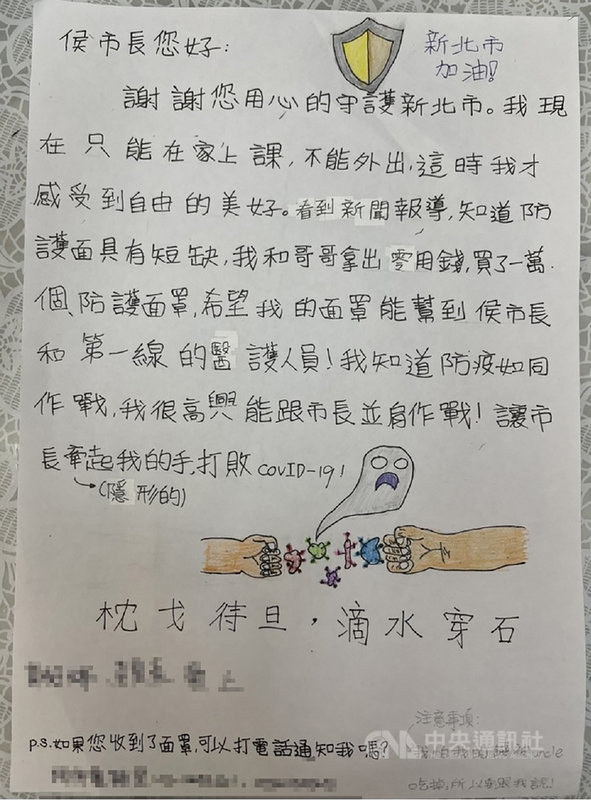 侯市長您好:
新北市
加油!
謝謝您用心的守護新北市。我現
在只能在家上課,不能外出,這時我才
感受到自由的美好。看到新聞報導,知道防
護面具有短缺,我和哥哥拿出零用錢,買了一萬
個防護面罩,希望我的面罩能幫到侯市長
和第一線的醫護人員!我知道防疫如同
作戰,我很高興能跟市長並肩作戰!讓市
長牽起我的手,打敗COVID-19!
(隱形的)
枕戈待旦,滴水穿石
上
p.s.如果您收到了面罩,可以打電話通知我嗎?
注意事項:
中央通訊社
我怕我的 uncle
吃掉,所以要跟我